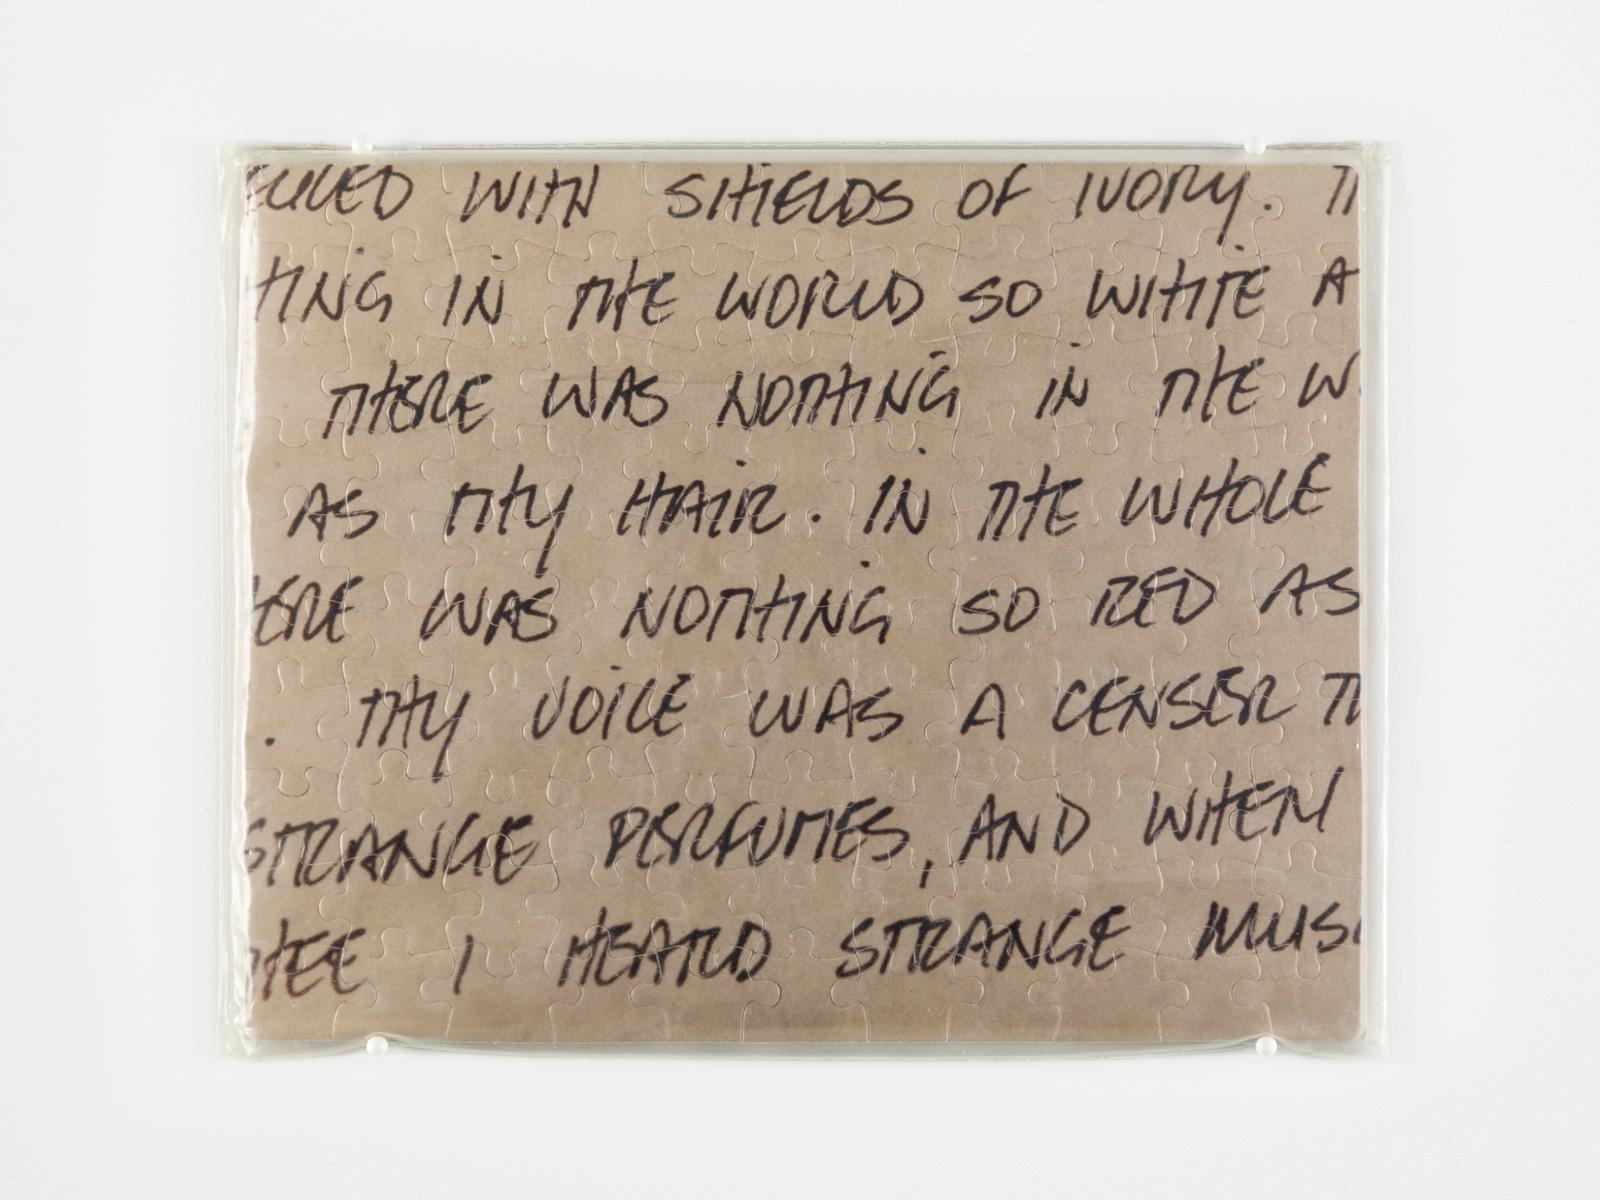 ECKED WITH SHIELDS OF IVORY. TH
HING IN THE WORLD SO WHITE A
THERE WAS NOTHING IN THE W
AS THY HAIR. IN THE WHOLE
HERE WAS NOTHING SO RED AS
. THY VOICE WAS A CENSER TH
STRANGE PERFUMES, AND WHEN
THEE I HEARD STRANGE MUSI